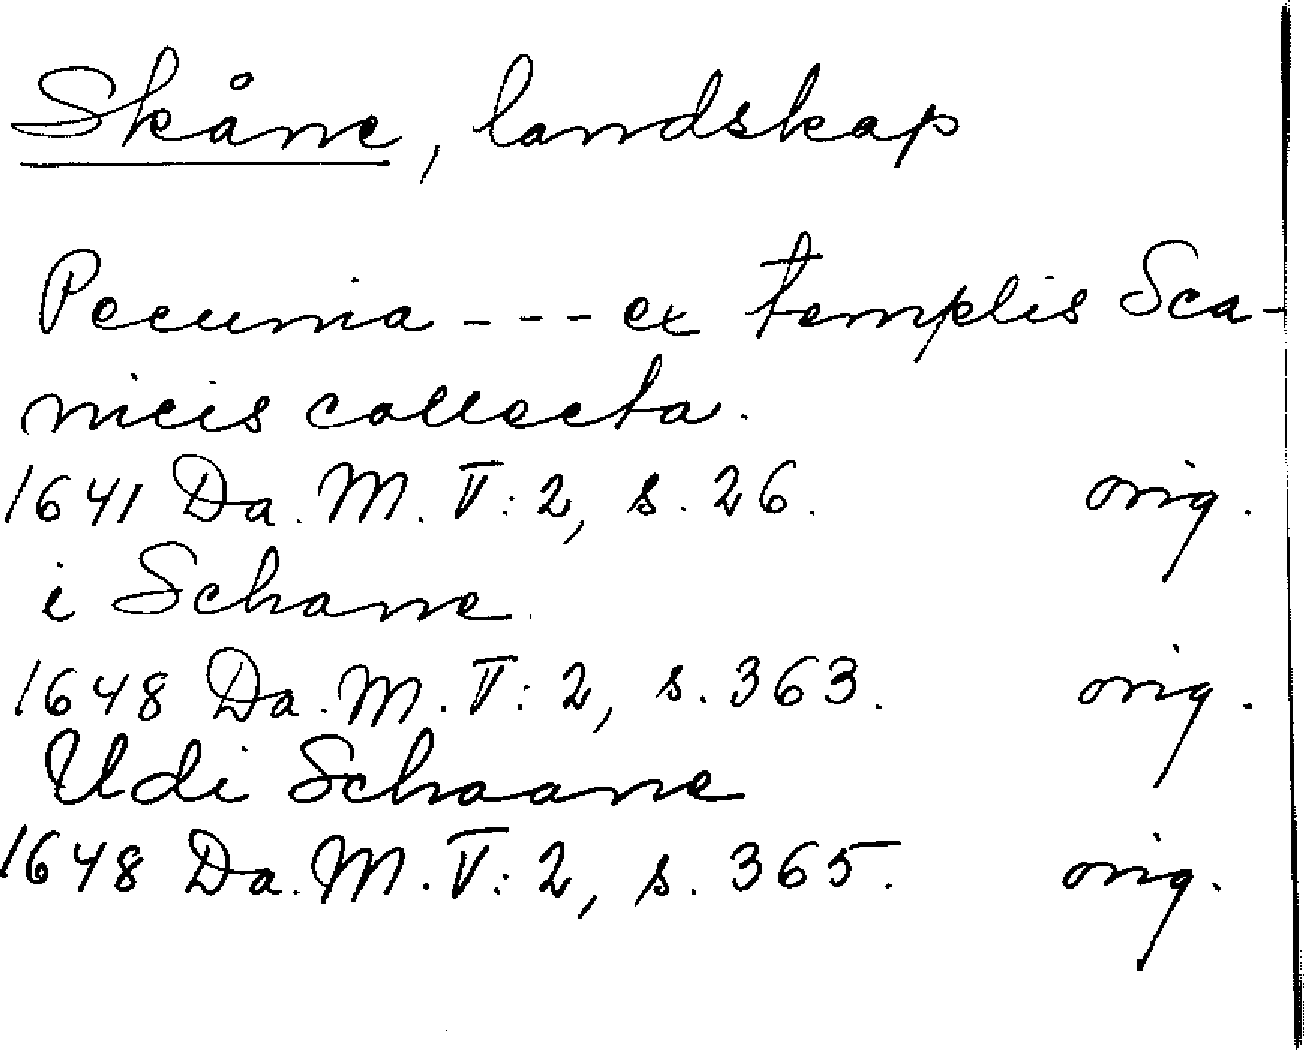 Skåne, landskap
Pecunia - - - ex templis Sca-
nicis collecta.
1641 Da. M. V: 2, s. 26. orig.
i Schane.
1648 Da. M. V: 2, s. 363. orig.
Udi Schaane
1648 Da. M. V: 2, s. 365. orig.